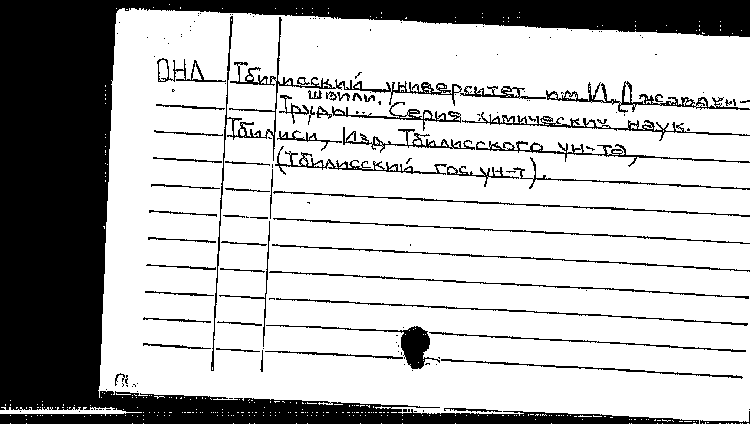 ДНЛ Тбилисский университет им И. Джавахи-
швили.
Труды... Серия химических наук.
Тбилиси, Изд. Тбилисского ун-та,
(Тбилисский гос. ун-т).